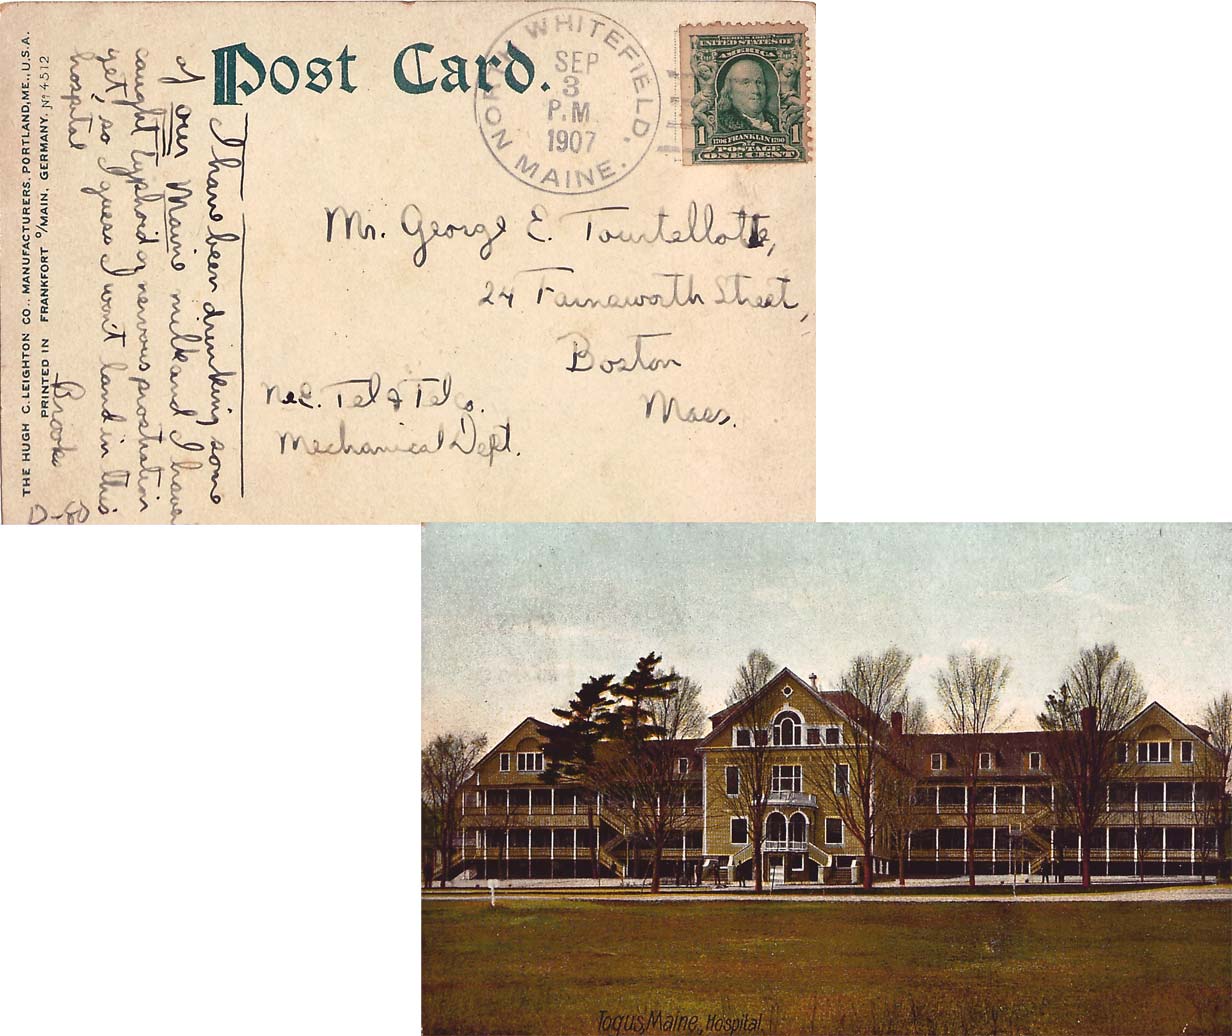 THE HUGH C. LEIGHTON CO., MANUFACTURERS, PORTLAND, ME., U.S.A.
PRINTED IN FRANKFORT O/MAIN, GERMANY. No 4512
Post Card.
NORTH WHITEFIELD,
SEP
3
P.M
1907
MAINE.
SERIES 1902
UNITED STATES OF
AMERICA
1 1706 FRANKLIN 1790 1
POSTAGE
ONE CENT
I have been drinking some
of our Maine milk and I have
caught typhoid or nervous prostration
yet, so I guess I won't land in this
hospital
Brooks
D-80
Mr. George E. Tourtellotte,
24 Farnsworth Street,
Boston
Mass.
N.E. Tel & Tel Co.
Mechanical Dept.
Togus, Maine., Hospital.